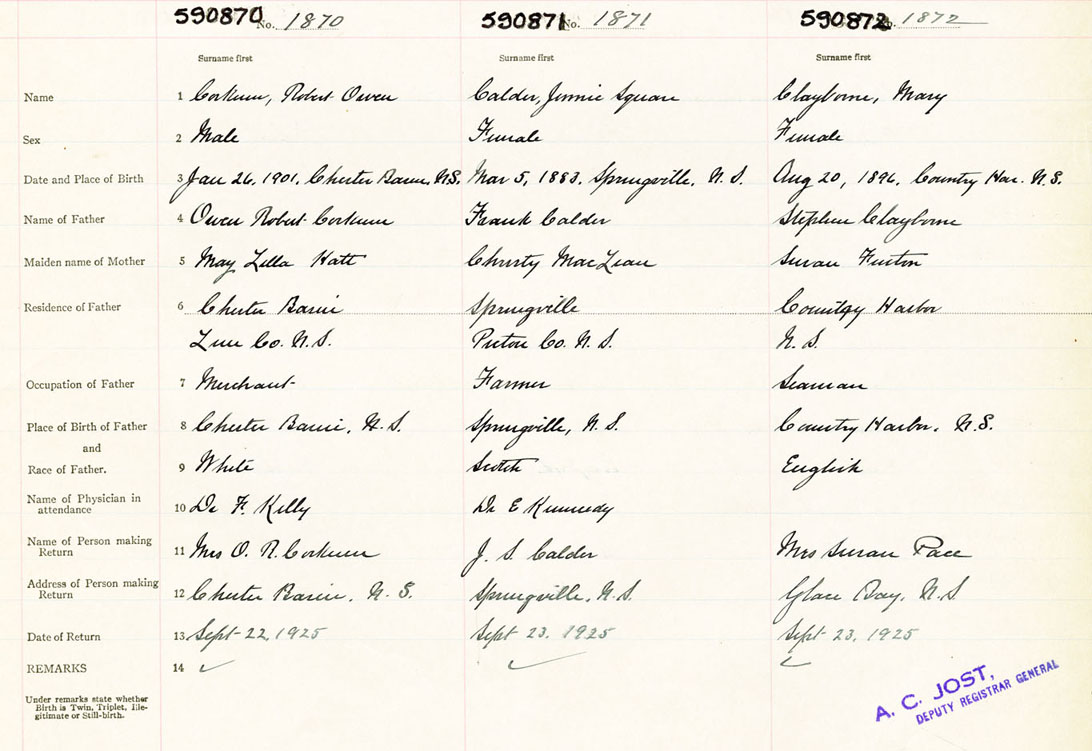 590870 No. 1870 590871 No. 1871 590872 No. 1872
Surname first Surname first Surname first
Name 1 Corkum, Robert Owen Calder, Jennie Square Clayborne, Mary
Sex 2 Male Female Female
Date and Place of Birth 3 Jan 26, 1901. Chester Basin, N.S. Mar 5, 1883. Springville, N.S. Aug 20, 1896. Country Har. N.S.
Name of Father 4 Owen Robert Corkum Frank Calder Stephen Clayborne
Maiden name of Mother 5 May Zella Hatt Christy MacLean Susan Fenton
Residence of Father 6 Chester Basin Springville Country Harbor
Lun Co. N.S. Pictou Co. N.S. N.S.
Occupation of Father 7 Merchant Farmer Seaman
Place of Birth of Father 8 Chester Basin, N.S. Springville, N.S. Country Harbor, N.S.
and
Race of Father. 9 White Scotch English
Name of Physician in
attendance 10 Dr F. Kelly Dr E Kennedy
Name of Person making
Return 11 Mrs O. R. Corkum J. S. Calder Mrs Susan Pace
Address of Person making
Return 12 Chester Basin, N.S. Springville, N.S. Glace Bay, N.S
Date of Return 13 Sept 22, 1925 Sept 23, 1925 Sept 23, 1925
REMARKS 14
Under remarks state whether
Birth is Twin, Triplet, Ille-
gitimate or Still-birth.
A. C. JOST,
DEPUTY REGISTRAR GENERAL